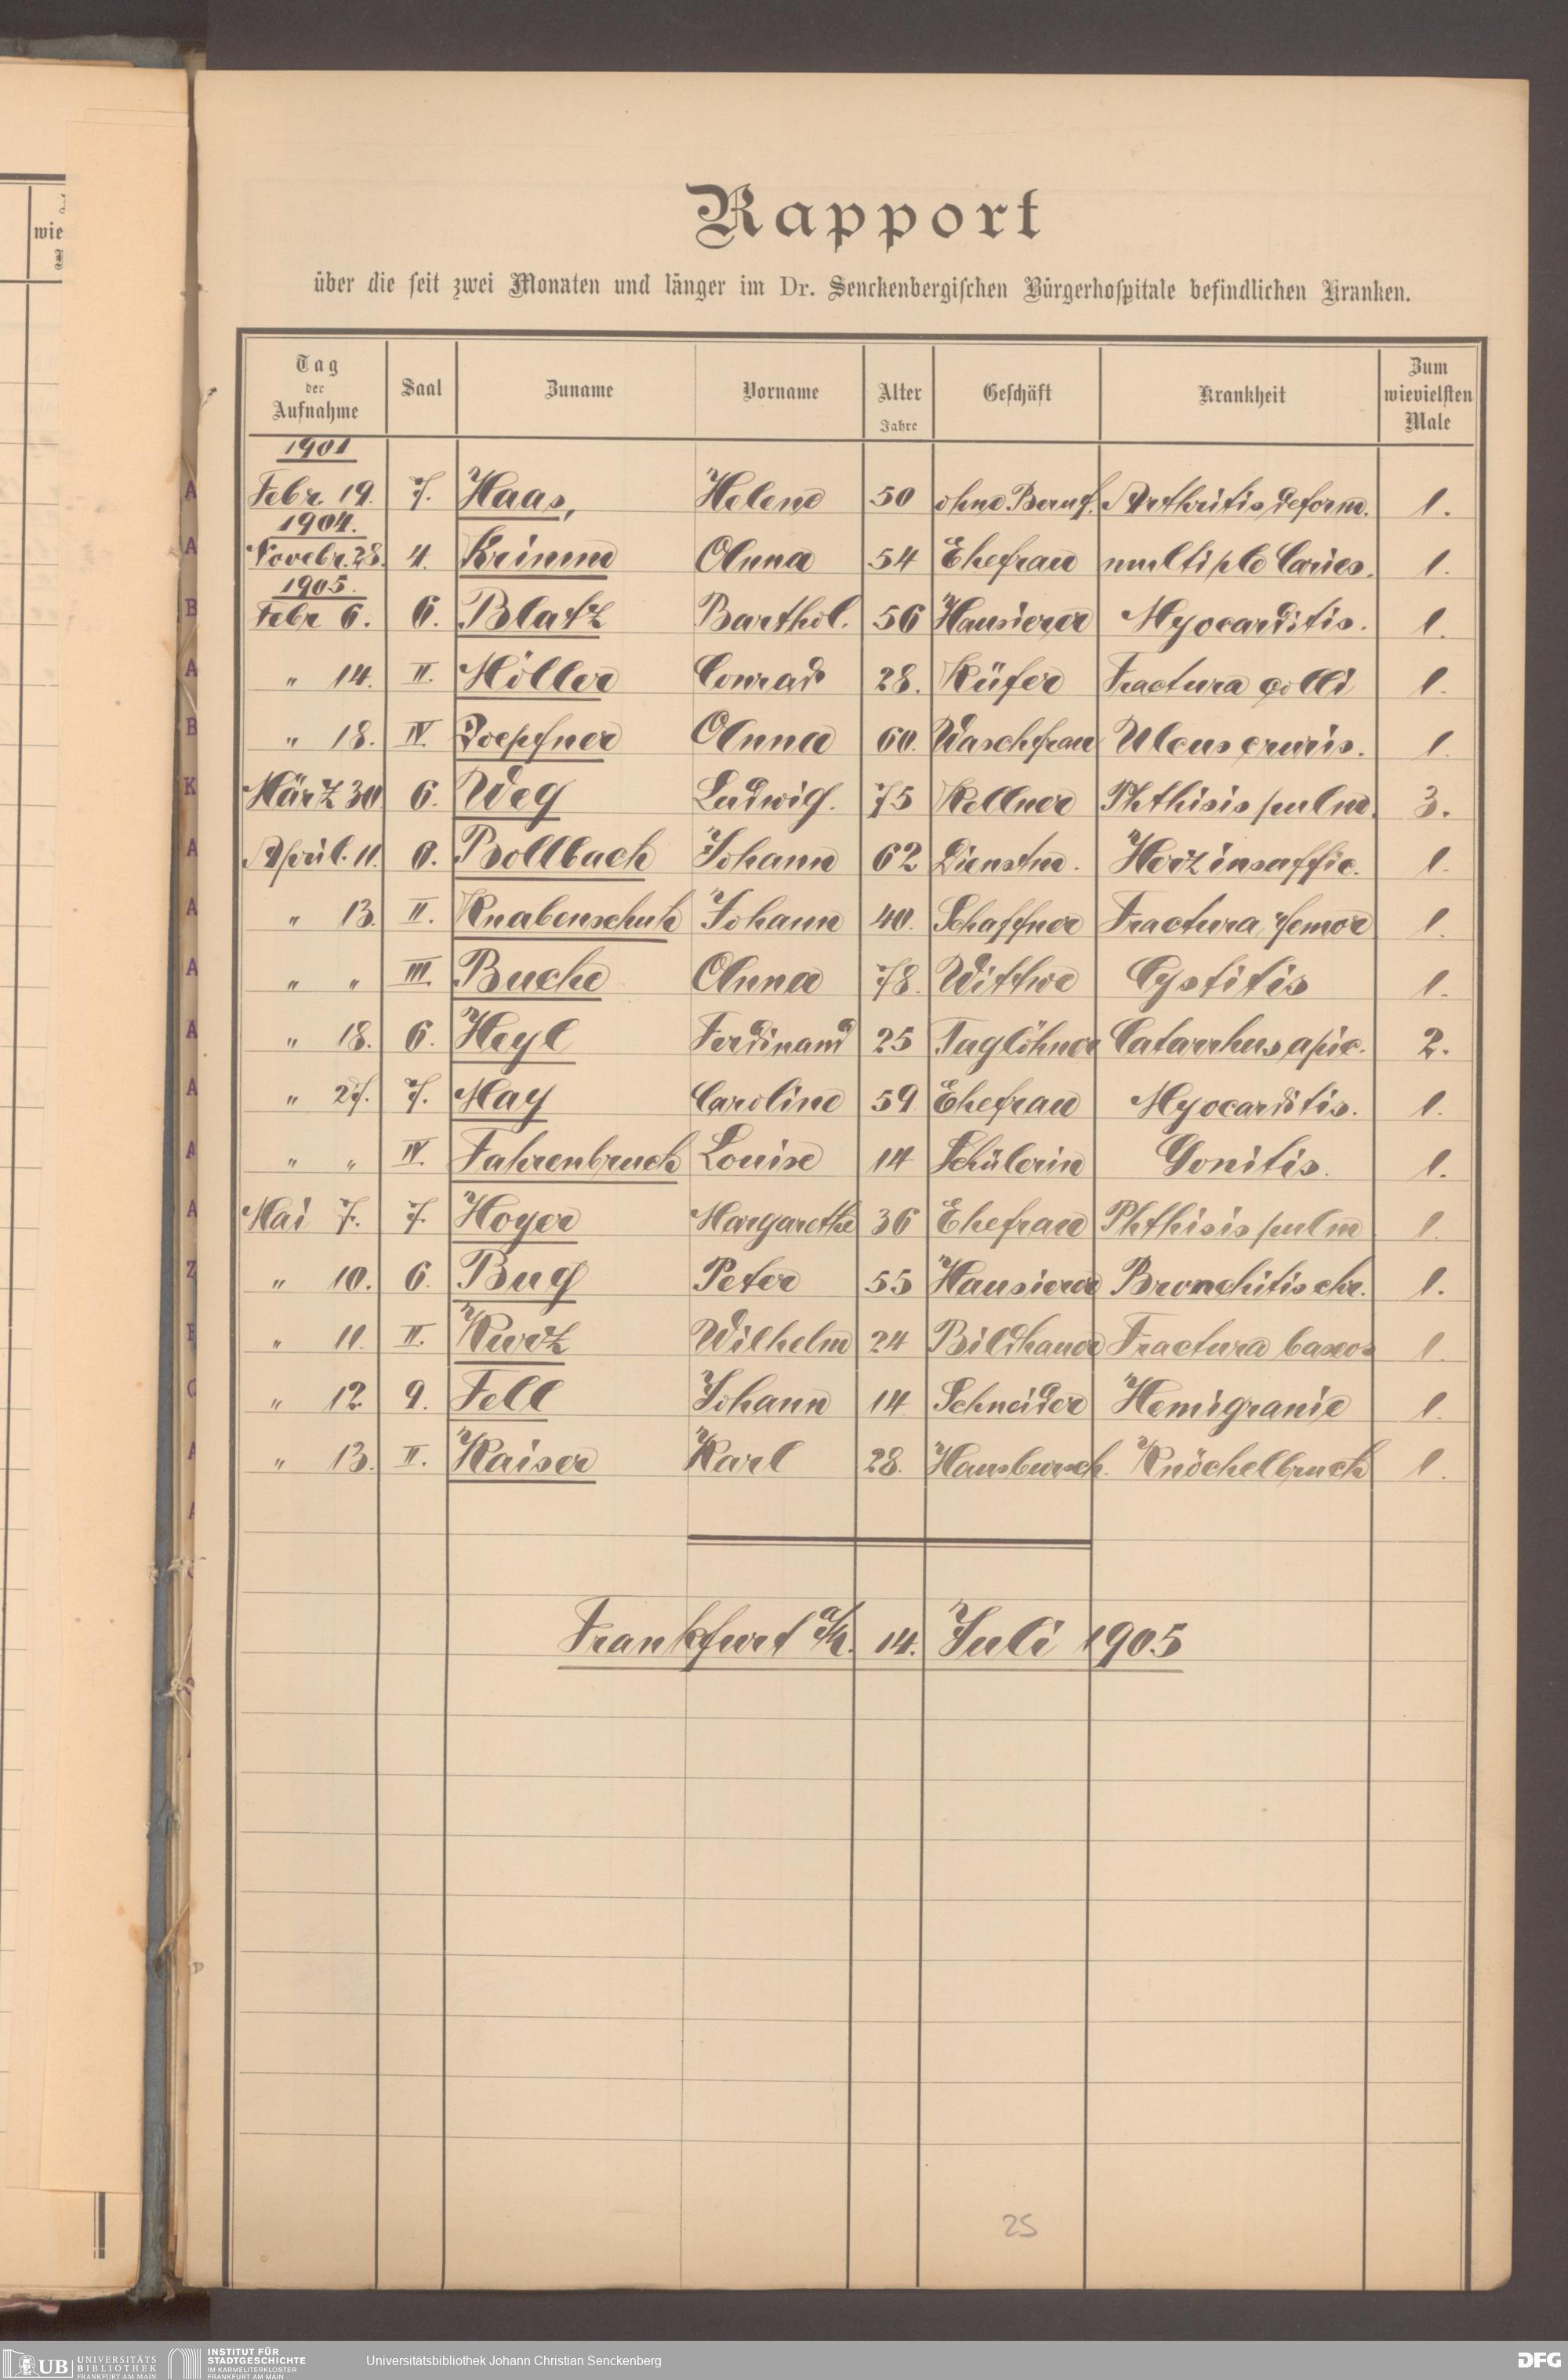 Rapport
über die ſeit zwei Monaten und länger im Dr. Senckenbergiſchen Bürgerhoſpitale befindlichen Kranken.
Tag der Aufnahme Saal Zuname Vorname Alter Jahre Geſchäft Krankheit Zum wievielſten Male
1901
Febr. 19. 7. Haas, Helene 50 ohne Beruf. Arthritis deform. 1.
1904.
Novebr. 28. 4. Krimm Anna 54 Ehefrau multiple Caries. 1.
1905.
Febr 6. 6. Blatz Barthol. 56 Hausierer Myocarditis. 1.
" 14. II. Höller Conrad 28. Küfer Fractura colli 1.
" 18. IV. Zoepfner Anna 60. Waschfrau Ulcus cruris. 1.
März 30 6. Weg Ludwig. 75 Kellner Phthisis pulm. 3.
April. 11. 6. Bollbach Johann 62 Dienstm. Herzinsuffic. 1.
" 13. II. Knabenschuh Johann 40. Schaffner Fractura femor 1.
" " III. Buche Anna 78. Wittwe Cystitis 1.
" 18. 6. Heyl Ferdinand 25 Taglöhner Catarrhus apic. 2.
" 27. 7. May Caroline 59 Ehefrau Myocarditis. 1.
" " IV. Fahrenbruch Louise 14 Schülerin Gonitis. 1.
Mai 7. 7. Hoyer Margarethe 36 Ehefrau Phthisis pulm 1.
" 10. 6. Bug Peter 55 Hausierer Bronchitis chr. 1.
" 11. II. Kurz Wilhelm 24 Bildhauer Fractura baseos 1.
" 12. 9. Fell Johann 14 Schneider Hemigranie 1.
" 13. II. Kaiser Karl 28. Hausbursch. Knöchelbruch 1.
Frankfurt a/M. 14. Juli 1905
25
UB UNIVERSITÄTS BIBLIOTHEK FRANKFURT AM MAIN
INSTITUT FÜR STADTGESCHICHTE IM KARMELITERKLOSTER FRANKFURT AM MAIN
Universitätsbibliothek Johann Christian Senckenberg
DFG